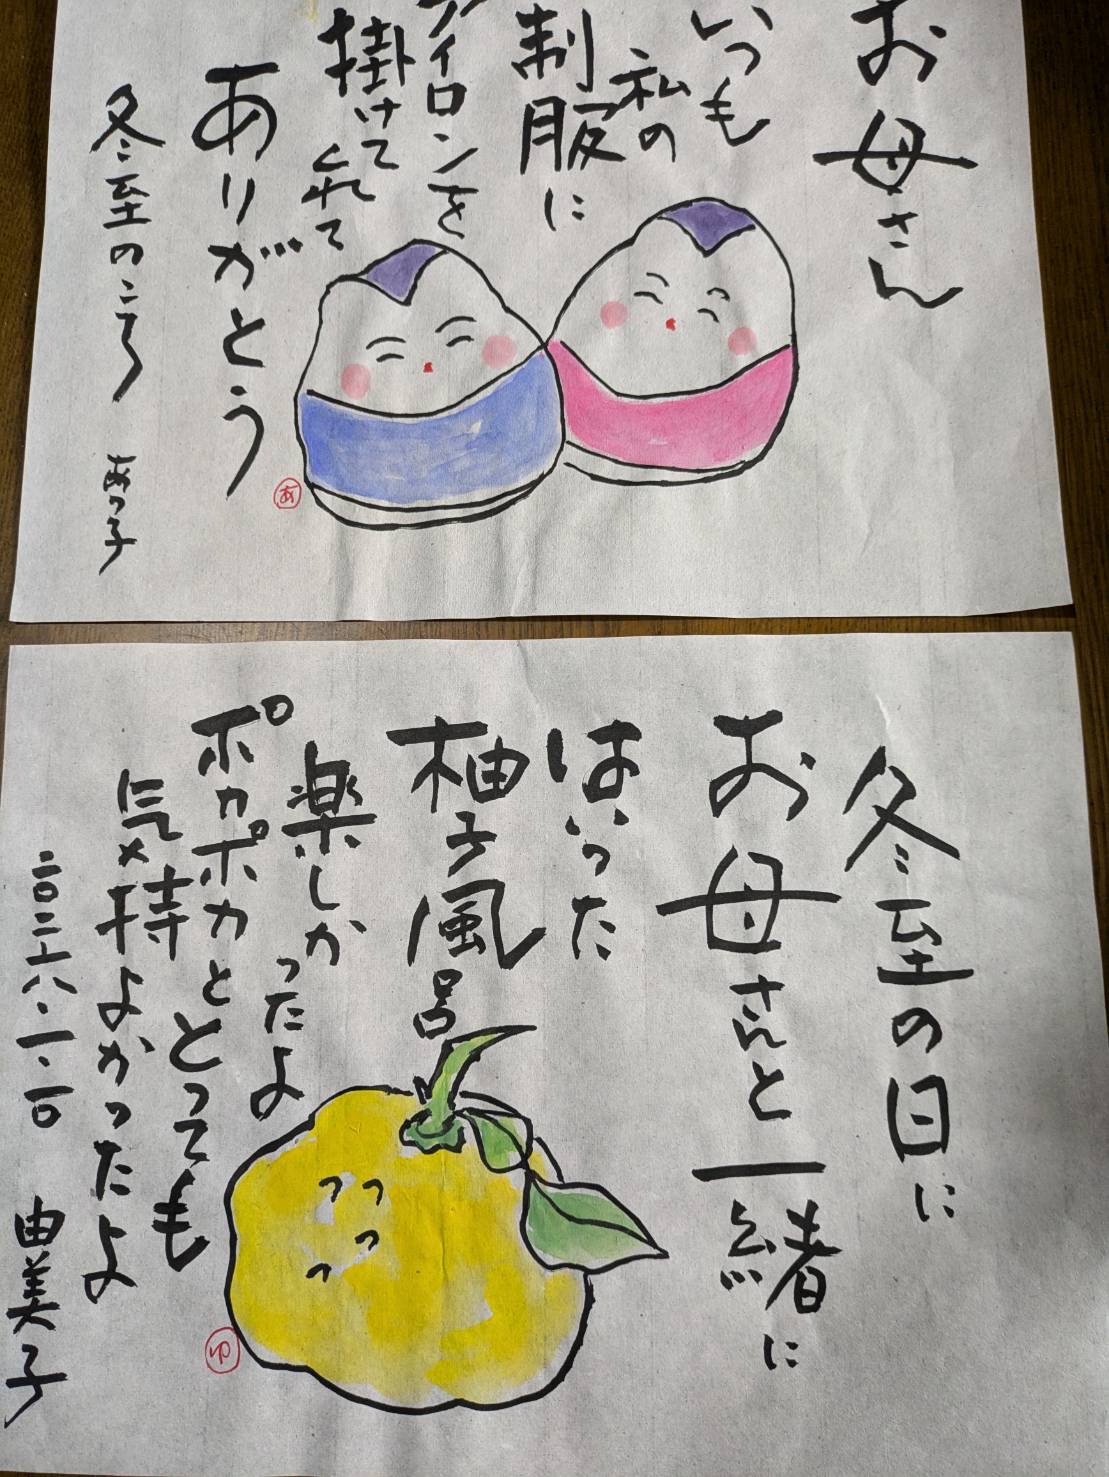 お母さん
いつも
私の
制服に
アイロンを
掛けて
くれて
ありがとう
冬至のころ
あつ子
あ
冬至の日に
お母さんと一緒に
はいった
柚子風呂
楽しかったよ
ポカポカととっても
気持よかったよ
二〇二六.一.一〇
由美子
ゆ